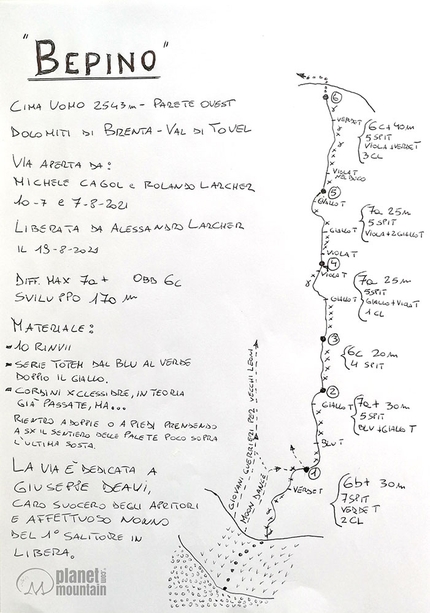 "BEPINO"
CIMA UOMO 2543m - PARETE OVEST
DOLOMITI DI BRENTA - VAL DI TOVEL
VIA APERTA DA:
MICHELE CAGOL e ROLANDO LARCHER
10-7 e 7-8-2021
LIBERATA DA ALESSANDRO LARCHER
IL 19-8-2021
DIFF. MAX 7a+ OBB 6c
SVILUPPO 170 m
MATERIALE:
- 10 RINVII
- SERIE TOTEM DAL BLU AL VERDE
DOPPIO IL GIALLO.
- CORDINI X CLESSIDRE, IN TEORIA
GIÀ PASSATE, MA...
RIENTRO A DOPPIE O A PIEDI PRENDENDO
A SX IL SENTIERO DELLE PALETE POCO SOPRA
L'ULTIMA SOSTA.
LA VIA È DEDICATA A
GIUSEPPE DEAVI,
CARO SUOCERO DEGLI APRITORI
E AFFETTUOSO NONNO
DEL 1° SALITORE IN
LIBERA.
6
VERDE T
6c+ 40m
5 SPIT
VIOLA+VERDE T
3 CL
VIOLA T
5
GIALLO T
7a 25m
5 SPIT
VIOLA+2 GIALLO T
GIALLO T
VIOLA T
4
VIOLA T
7a 25m
5 SPIT
GIALLO+VIOLA T
1 CL
GIALLO T
3
6c 20m
4 SPIT
2
GIALLO T
7a+ 30m
5 SPIT
BLU+GIALLO T
BLU T
1
VERDE T
6b+ 30m
7 SPIT
VERDE T
2 CL
GIOVANI GUERRIERI PER VECCHI LEONI
MOON DANCE
planet
mountain
.com